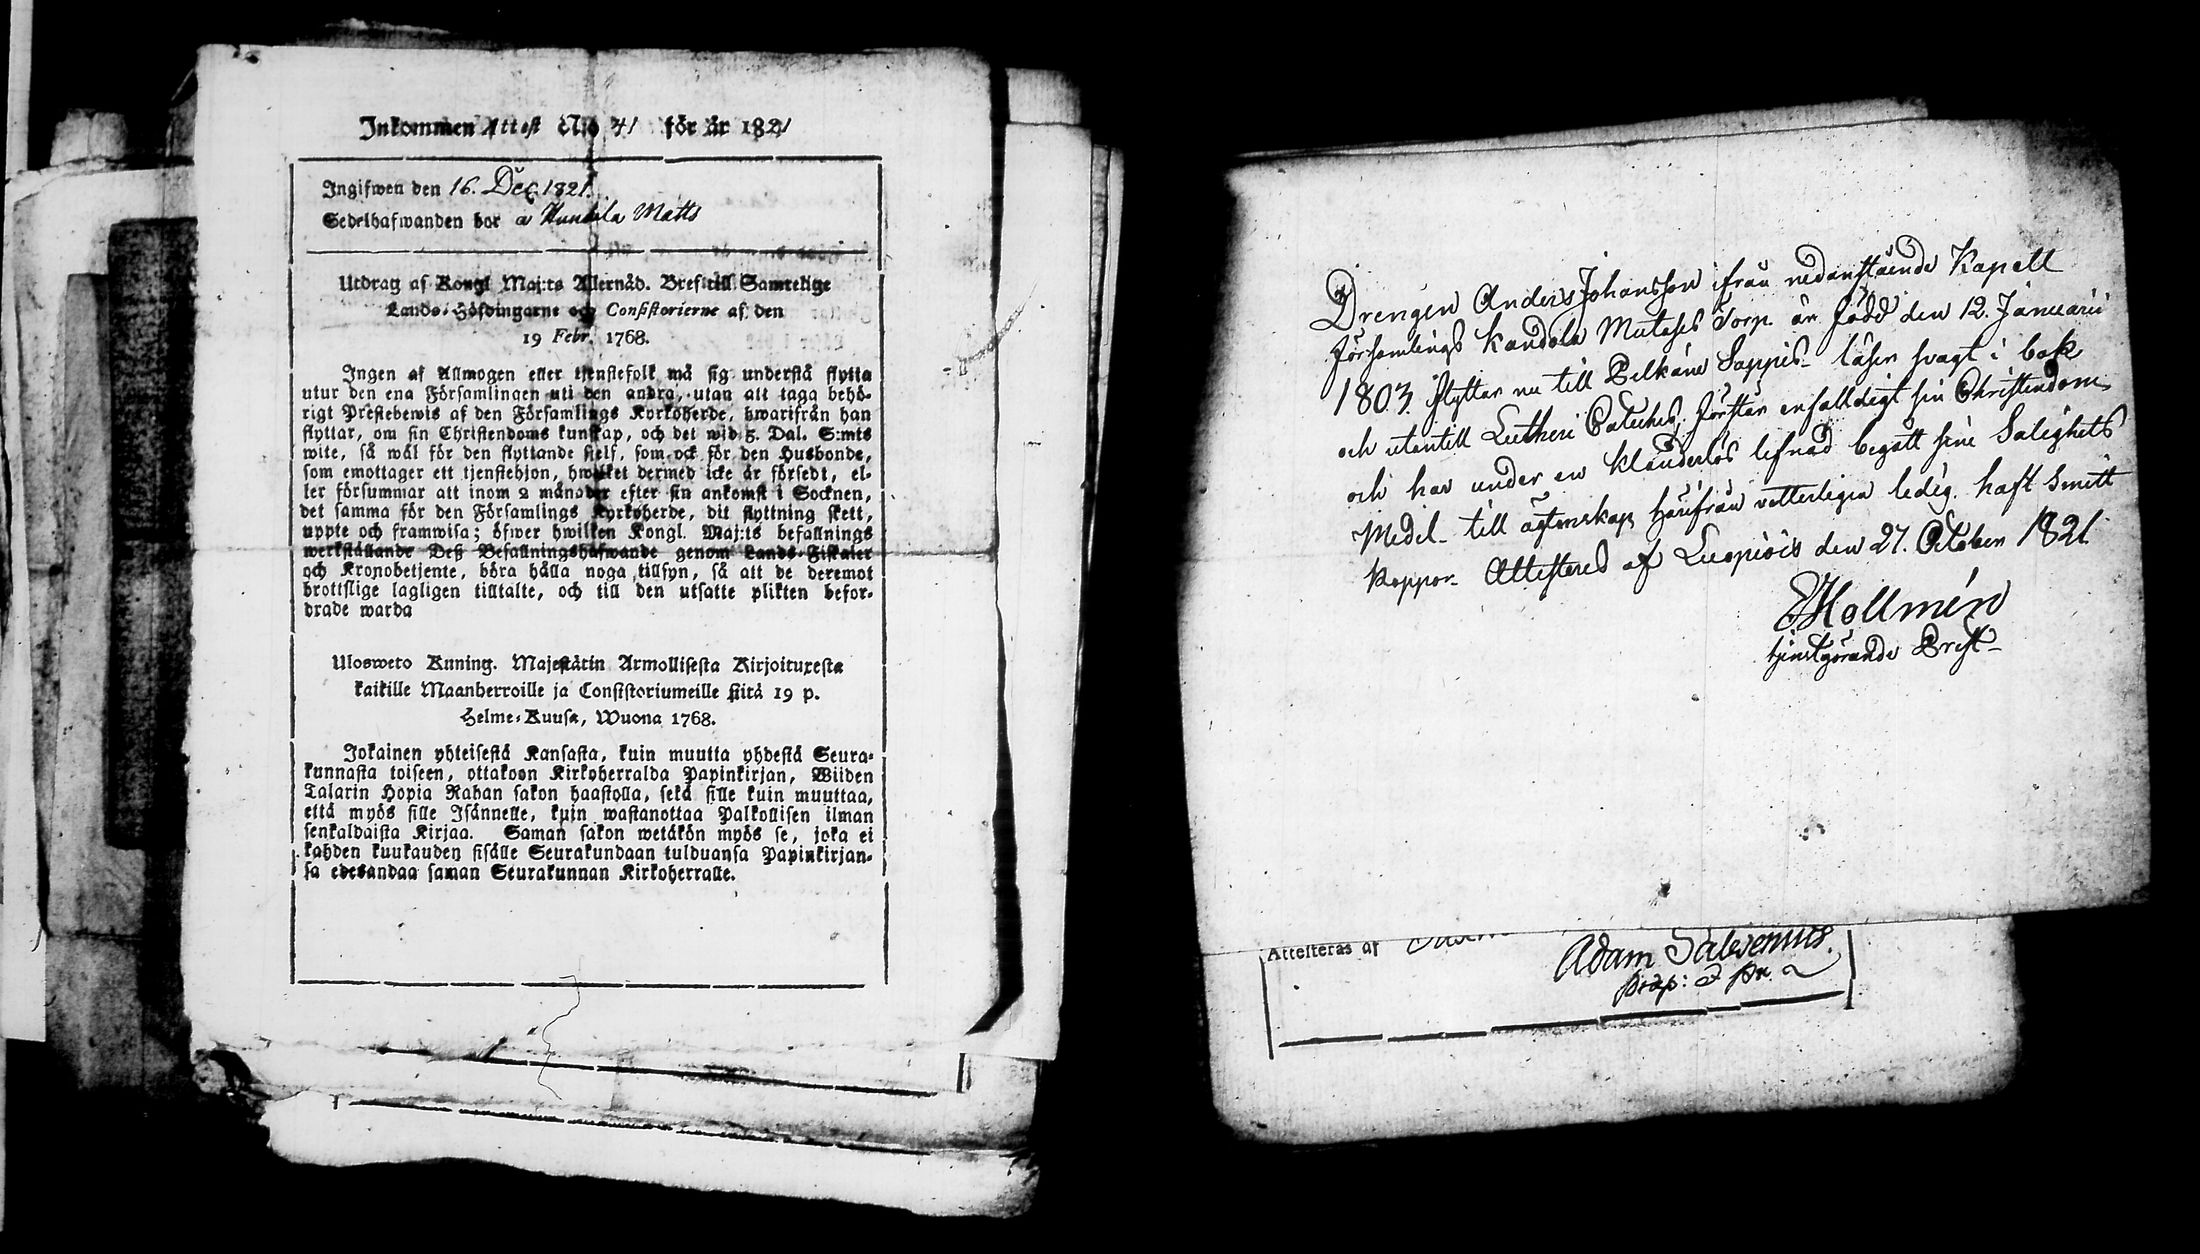 Inkommen Attest N:o 41 för år 1821
Ingifwen den 16. Dec. 1821.
Sedelhafwanden bor a Matts
Utdrag af Kongl Maj:ts Allernåd. Bref till Samtelige
Lands-Höfdingarne och Consistorierne af den
19 Febr. 1768.
Ingen af Allmogen eller tjenstefolk må sig understå flytta
utur den ena Församlingen uti den andra, utan att taga behö-
rigt Prestebewis af den Församlings Kyrkoherde, hwarifrån han
flyttar, om sin Christendoms kunskap, och det wid 5. Dal. S:mts
wite, så wäl för den flyttande sjelf, som ock för den Husbonde,
som emottager ett tjenstehjon, hwilket dermed icke är försedt, el-
ler försummar att inom 2 månader efter sin ankomst i Socknen,
det samma för den Församlings Kyrkoherde, dit flyttning skett,
uppte och framwisa; öfwer hwilken Kongl. Maj:ts befallnings
werkställande Deß Befallningshafwande genom Lands-Fiskaler
och Kronobetjente, böra hålla noga tillsyn, så att de deremot
brottslige lagligen tilltalte, och till den utsatte plikten befor-
drade warda
Ulosweto Kuning. Majestätin Armollisesta Kirjoituxesta
kaikille Maanherroille ja Consistoriumeille siitä 19 p.
Helme-Kuusa, Wuona 1768.
Jokainen yhteisestä Kansasta, kuin muutta yhdestä Seura-
kunnasta toiseen, ottakoon Kirkoherralda Papinkirjan, Wiiden
Talarin Hopia Rahan sakon haastolla, sekä sille kuin muuttaa,
että myös sille Isännelle, kuin wastanottaa Palkollisen ilman
senkaldaista Kirjaa. Saman sakon wetäkön myös se, joka ei
kahden kuukauden sisälle Seurakundaan tulduansa Papinkirjan-
sa edesandaa saman Seurakunnan Kirkoherralle.
Drengen Anders Johansson ifrån nedanstående Kapell
Församlings Kandola Torp är född den 12. Januarii
1803. flyttar nu till Pelkäne Sappis- läser svagt i bok
och utantill Lutheri Cateches, förstår enfalldigt sin Christendom,
och har under en klanderlös lefnad begått sine Salighets
Medel- till ägtenskap härifrån vetterligen ledig. haft Smitt
Koppor- Attesteras af Luopiois den 27. October 1821.
Hollmén
tjenstgörande Prest-
Attesteras af
Adam Salvenius.